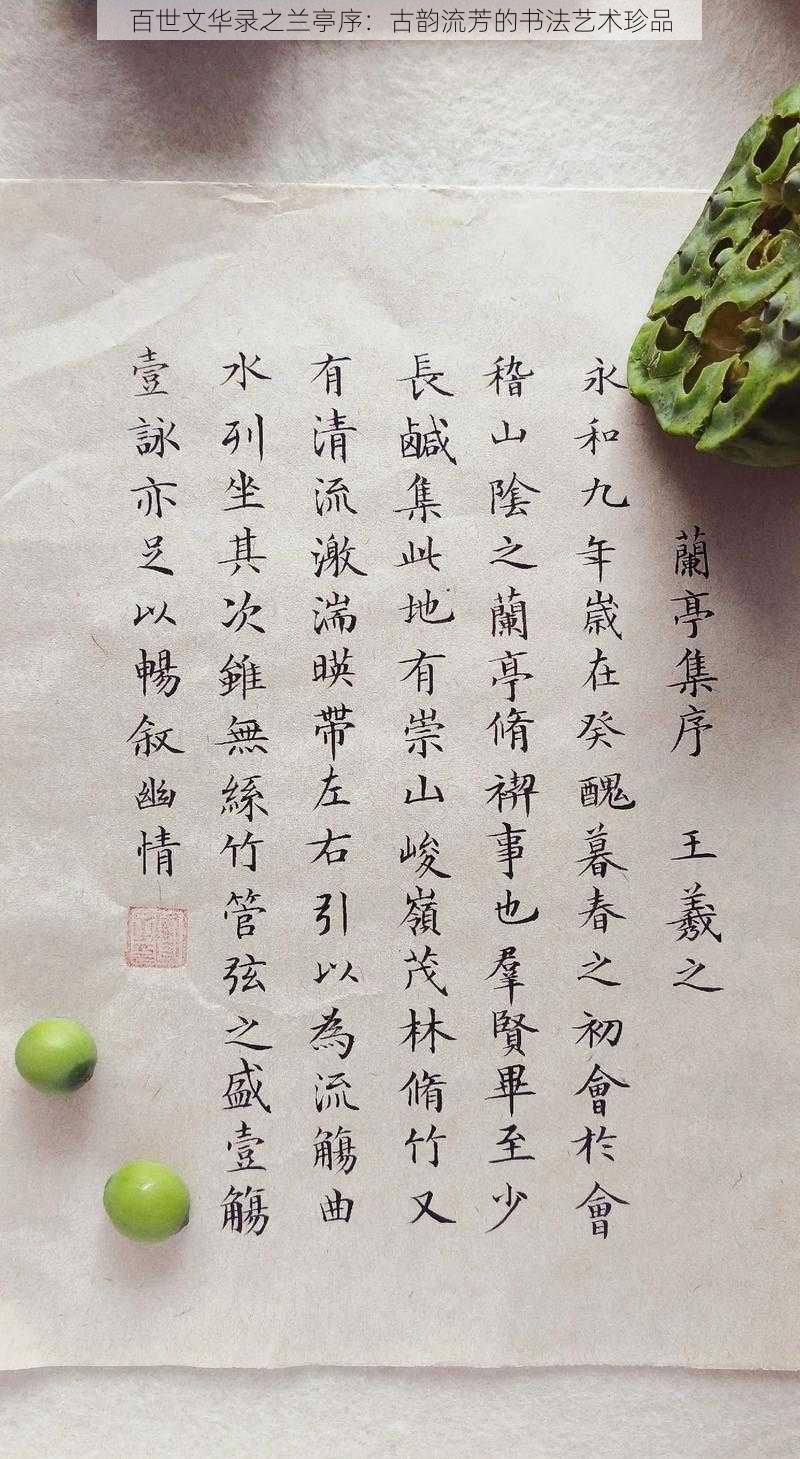 百世文华录之兰亭序：古韵流芳的书法艺术珍品
蘭亭集序 王羲之
永和九年嵗在癸醜暮春之初會於會
稽山陰之蘭亭脩禊事也羣賢畢至少
長鹹集此地有崇山峻嶺茂林脩竹又
有清流激湍暎帶左右引以為流觴曲
水列坐其次雖無絲竹管弦之盛壹觴
壹詠亦足以暢叙幽情